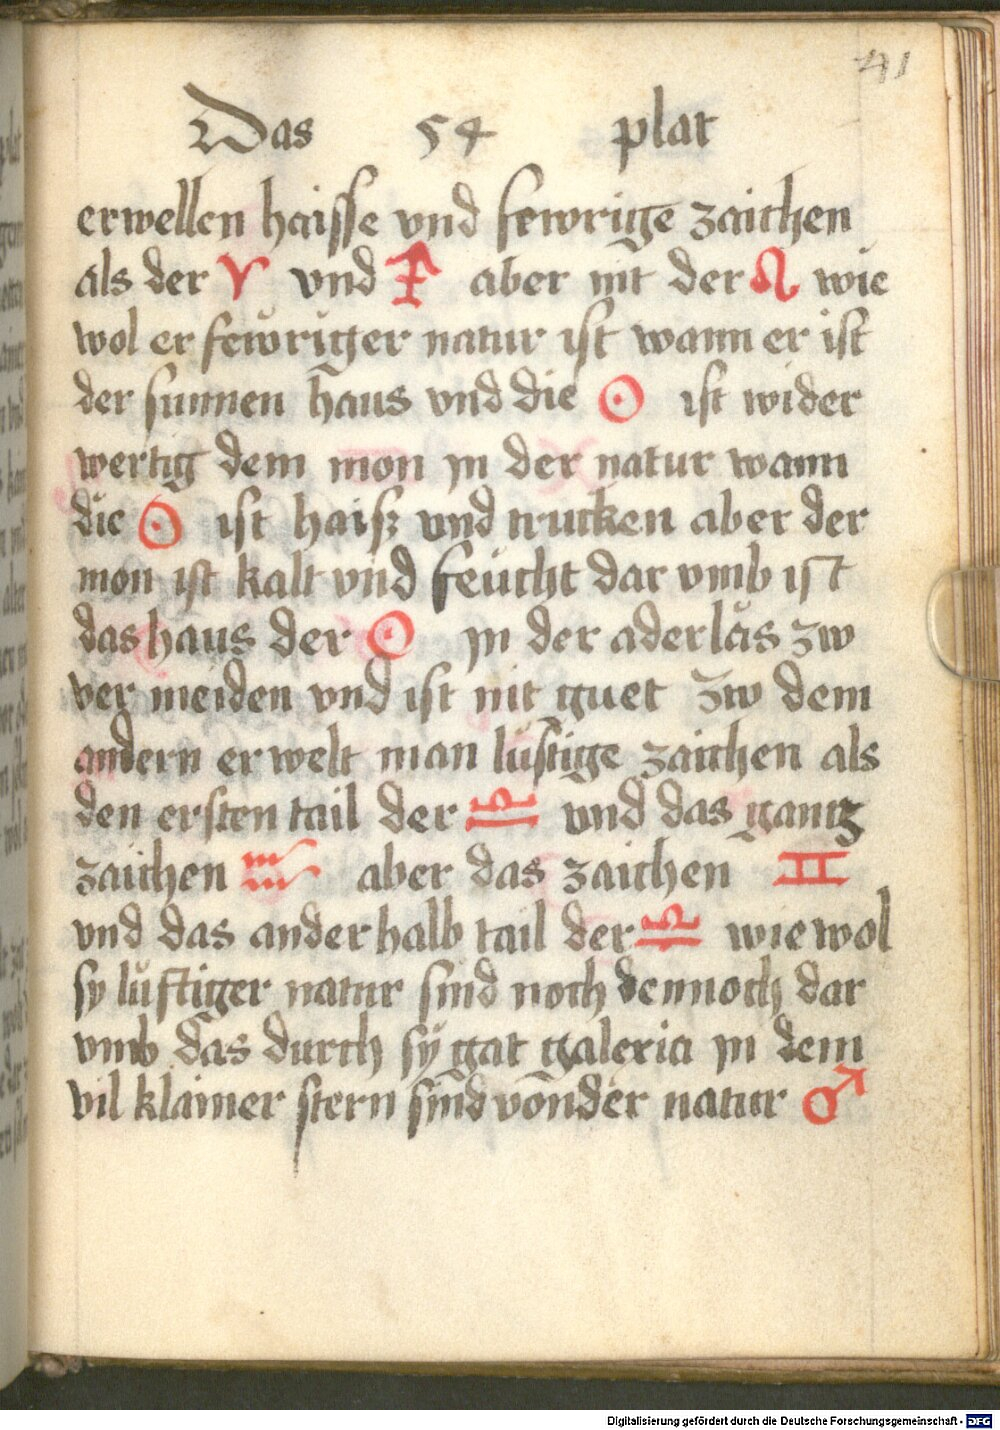 41
Das 54 plat
erwellen haisse vnd fewrige zaichen
als der ♈ vnd ♐ aber nit der ♌ wie
wol er fewriger natur ist wann er ist
der sunnen haus vnd die ☉ ist wider
wertig dem mon jn der natur wann
die ☉ ist haisz vnd trucken aber der
mon ist kalt vnd feucht dar vmb ist
das haus der ☉ jn der aderlås zw
ver meiden vnd ist nit guet zw dem
andern erwelt man lüftige zaichen als
den ersten tail der ♎ vnd das gantz
zaichen ♒ aber das zaichen ♊
vnd das ander halb tail der ♎ wie wol
sy lüftiger natur sind noch dennoch dar
vmb das durch sy gat galexia jn dem
vil klainer stern sind von der natur ♂
Digitalisierung gefördert durch die Deutsche Forschungsgemeinschaft - DFG